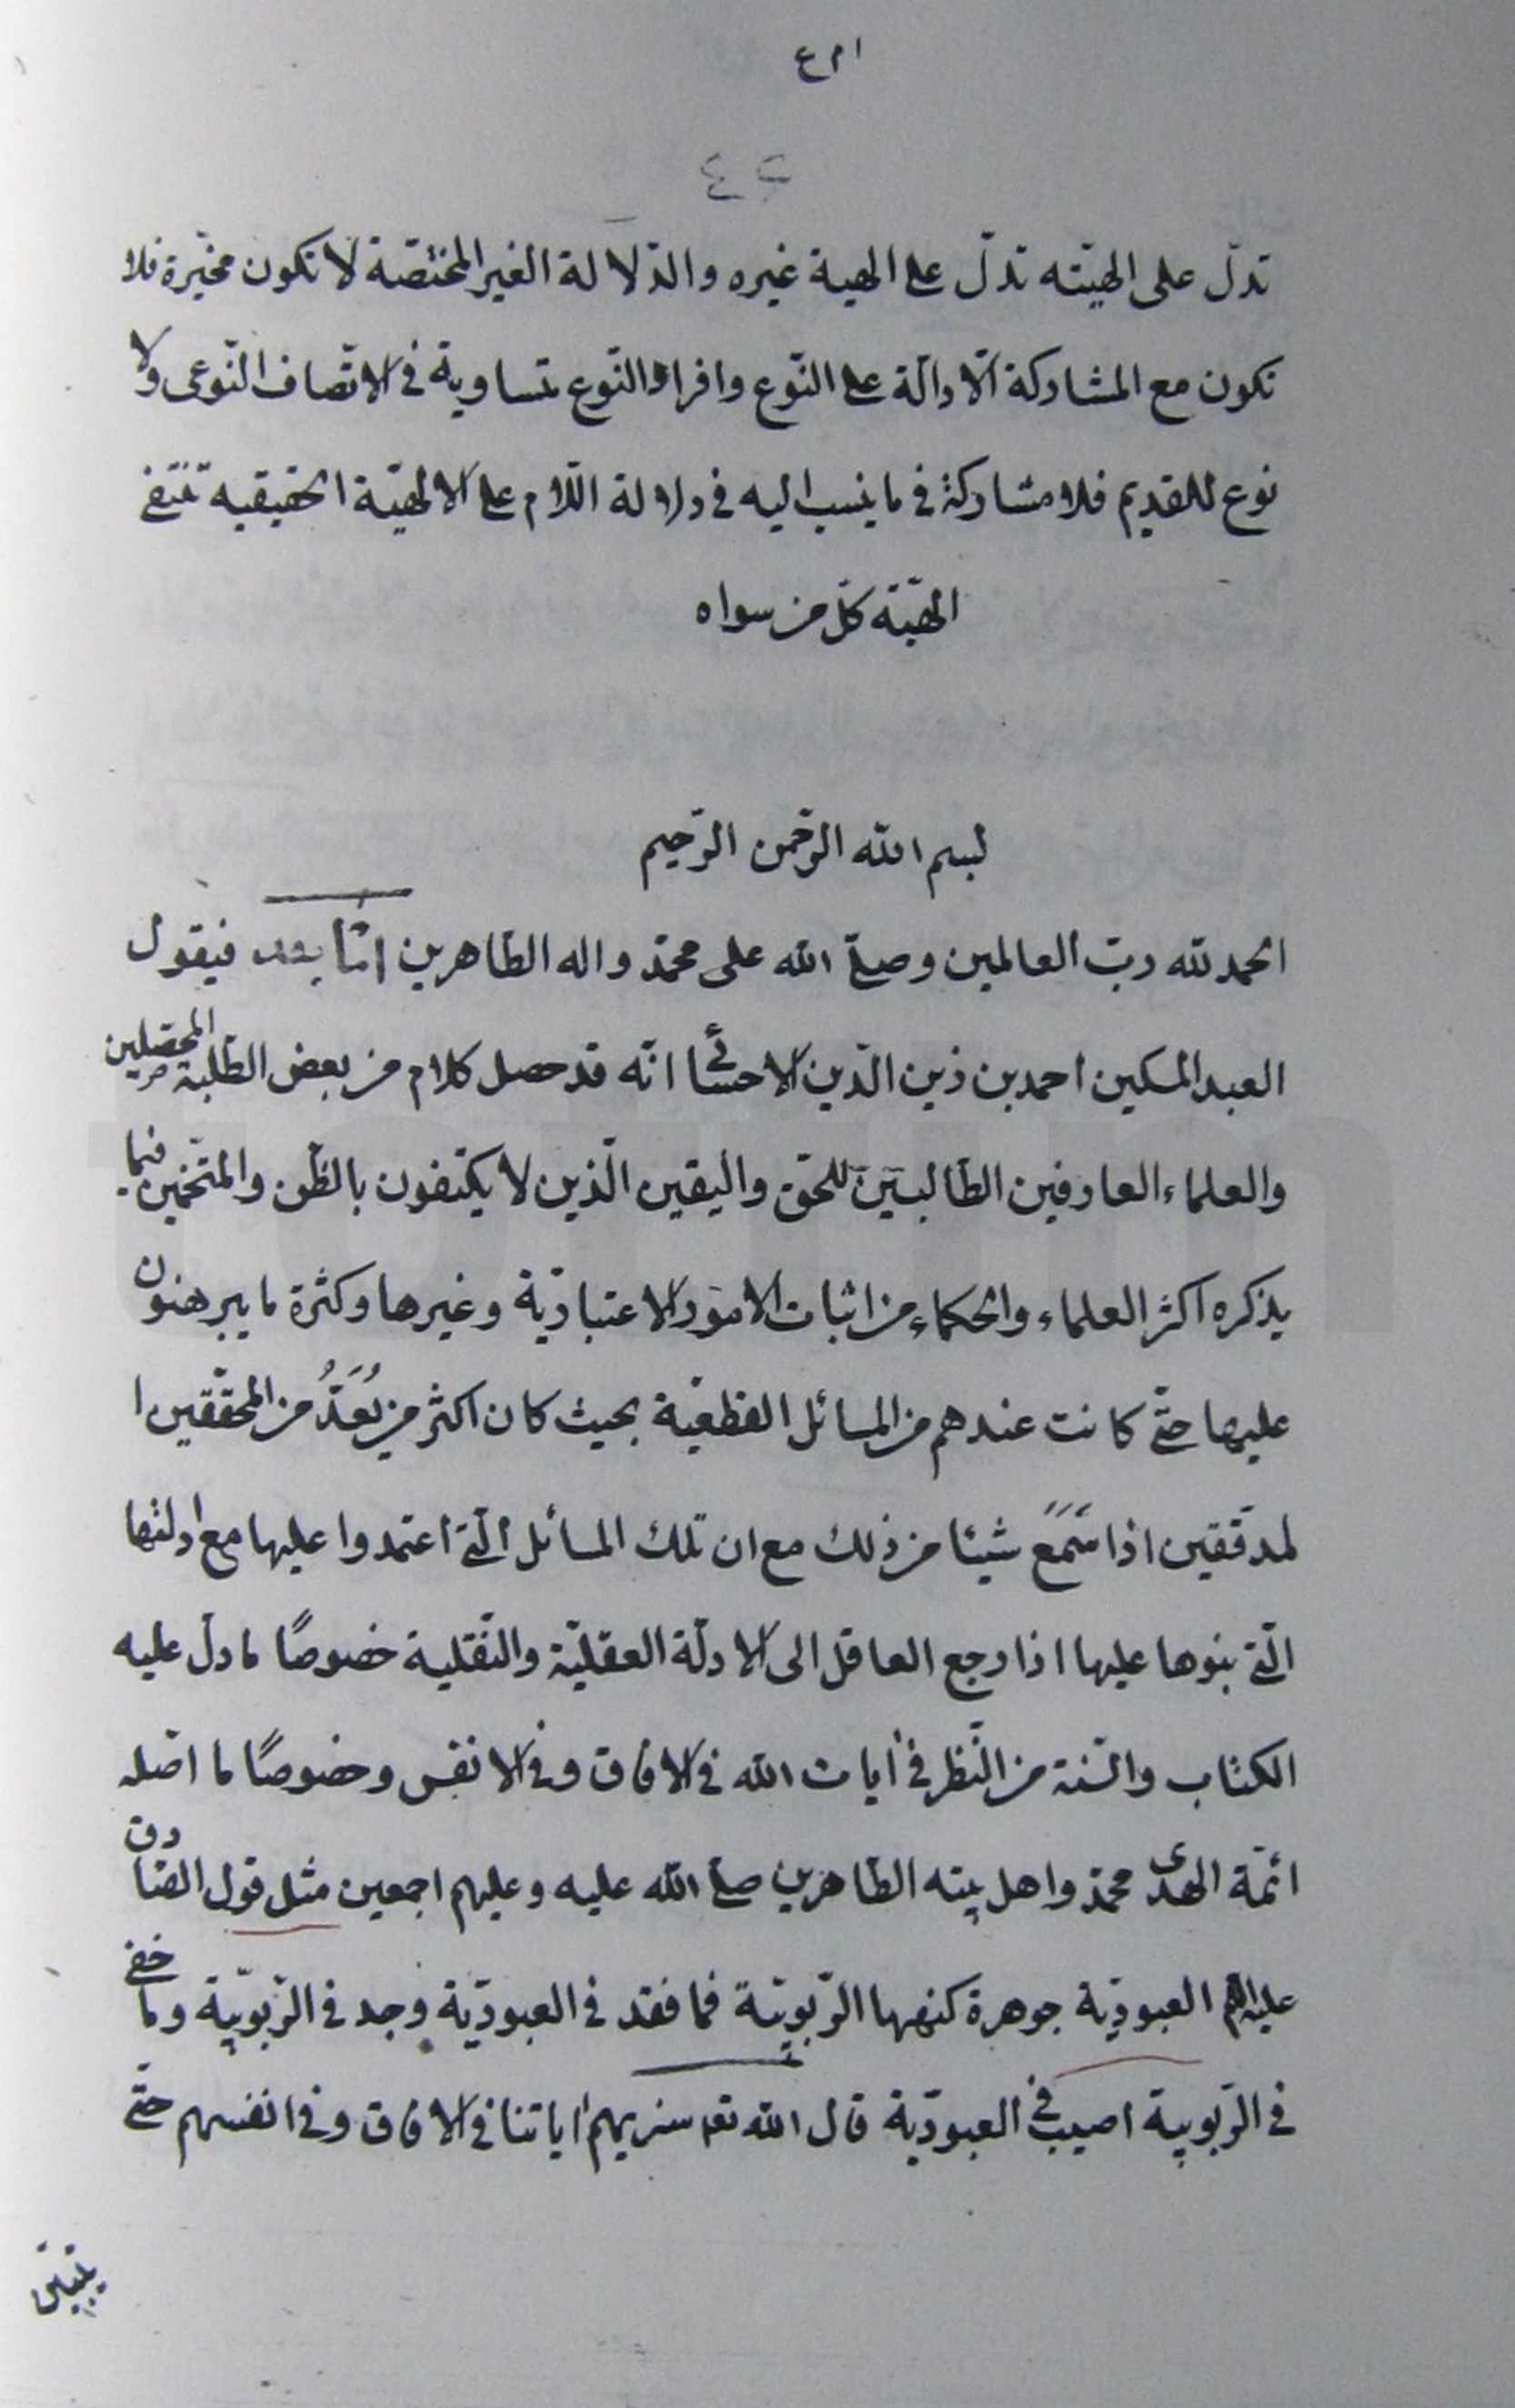 ٤٢
تدلّ على الهيّته تدلّ على الهية غيره والدّلالة الغير المختصّة لا تكون مخيّرة فلا
تكون مع المشاركة الّا دالّة على النّوع وافراد النّوع متساوية فى الاتّصاف النّوعى ولا
نوع للقديم فلا مشاركة فى ما ينسب اليه فى دلالة اللّام على الالهيّة الحقيقيه تنتفى
الهيّة كلّ من سواه
بسم الله الرّحمن الرّحيم
الحمد لله ربّ العالمين وصلى الله على محمّد واله الطّاهرين امّا بعد فيقول
العبد المسكين احمد بن زين الدّين الاحسائى انّه قد حصل كلام من بعض الطّلبة المحصلين
والعلماء العارفين الطّالبين للحقّ واليقين الّذين لا يكتفون بالظّن والتّخمين فيما
يذكره اكثر العلماء والحكماء من اثبات الامور الاعتباريّة وغيرها وكثرة ما يبرهنون
عليها حتّى كانت عندهم من المسائل القطعيّة بحيث كان اكثر من يُعَدُّ من المحقّقين ا
لمدقّقين اذا سَمَعَ شيئا من ذلك مع ان تلك المسائل الّتى اعتمدوا عليها مع ادلتها
الّتى بنوها عليها اذا رجع العاقل الى الادلّة العقليّة والنّقلية خصوصًا ما دلّ عليه
الكتاب والسّنة من النّظر فى ايات الله فى الافاق وفى الانفس وخصوصًا ما اصّله
ائمّة الهدى محمّد واهل بيته الطّاهرين صلى الله عليه وعليهم اجمعين مثل قول الصّادق
عليه السلام العبوديّة جوهرة كنهها الرّبوبيّة فما فقد فى العبوديّة وجد فى الرّبوبيّة وما خفى
فى الرّبوبية اصيب فى العبوديّة قال الله تعـ سنريهم اياتنا فى الافاق وفى انفسهم حتّى
يتبيّن